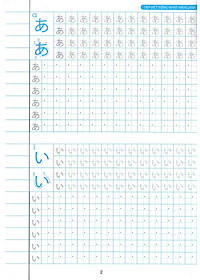 TẬP VIẾT TIẾNG NHẬT HIRAGANA
あ あ あ あ あ あ あ あ あ あ あ あ
あ あ あ あ あ あ あ あ あ あ あ
あ あ あ あ あ あ あ あ あ あ あ あ
あ あ あ あ あ あ あ あ あ あ あ
あ
あ
あ
あ
あ
あ
い い い い い い い い い い い い
い い い い い い い い い い い
い い い い い い い い い い い い
い い い い い い い い い い い
い
い
い
い
い
い
2